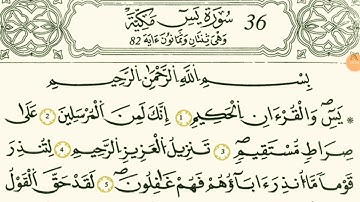 سُورَةُ يسٓ مَكِّيَّةٌ 36
وَهْيَ ثِنْتَانِ وَثَمَانُونَ ءَايَةً 82
بِسْمِ اللَّهِ الرَّحْمَٰنِ الرَّحِيمِ
يسٓ وَالْقُرْءَانِ الْحَكِيمِ 1 إِنَّكَ لَمِنَ الْمُرْسَلِينَ 2 عَلَىٰ
صِرَاطٍ مُّسْتَقِيمٍ 3 تَنزِيلُ الْعَزِيزِ الرَّحِيمِ 4 لِتُنذِرَ
قَوْمًا مَّا أُنذِرَ ءَابَاؤُهُمْ فَهُمْ غَٰفِلُونَ 5 لَقَدْ حَقَّ الْقَوْلُ